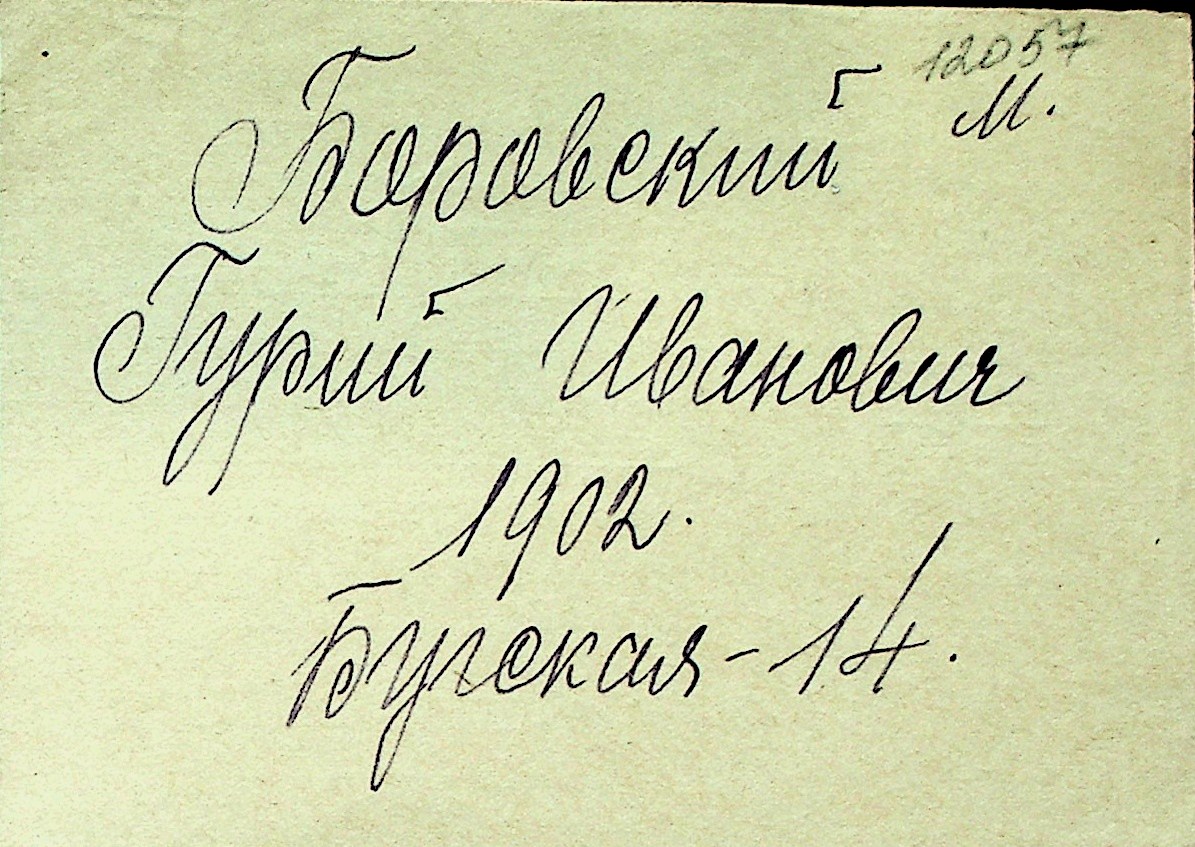 12057
Боровский М.
Гурий Иванович
1902.
Бугская - 14.